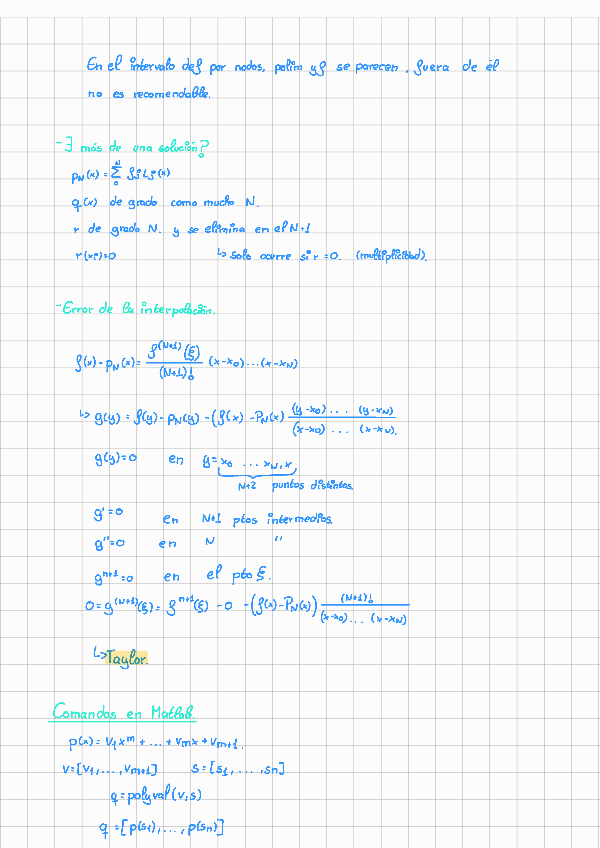 En el intervalo def por nodos, polim y f se parecen, fuera de él
no es recomendable.
- ∃ más de una solución?
p_N(x) = Σ_0^N f_j L_j(x)
q(x) de grado como mucho N.
r de grado N. y se elimina en el N+1
r(x_j)=0 ↳ Solo ocurre si r=0. (multiplicidad).
- Error de la interpolación.
f(x) - p_N(x) = f^(N+1)(ξ) / (N+1)! (x-x_0)...(x-x_N)
↳ g(y) = f(y) - p_N(y) - (f(x) - P_N(x) (y-x_0) ... (y-x_N) / (x-x_0) ... (x-x_N).
g(y)=0 en y= x_0 ... x_N, x
N+2 puntos distintos.
g'=0 en N+1 ptos intermedios.
g''=0 en N "
g^n+1=0 en el pto ξ.
0=g^(N+1)(ξ)= f^n+1(ξ) - 0 - (f(x)-P_N(x)) (N+1)! / (x-x_0)... (x-x_N)
↳ Taylor.
Comandos en Matlab.
p(x)= v_1 x^m + ... + v_m x + v_m+1.
v=[v_1,...,v_m+1] s=[s_1,...,s_n]
q=polyval(v,s)
q=[p(s_1),...,p(s_n)]